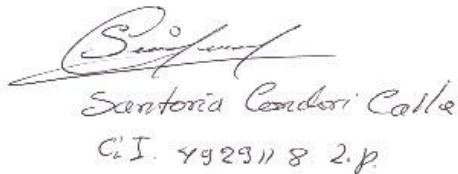 Santoria Condori Calle
C.I. 4929118 L.P.